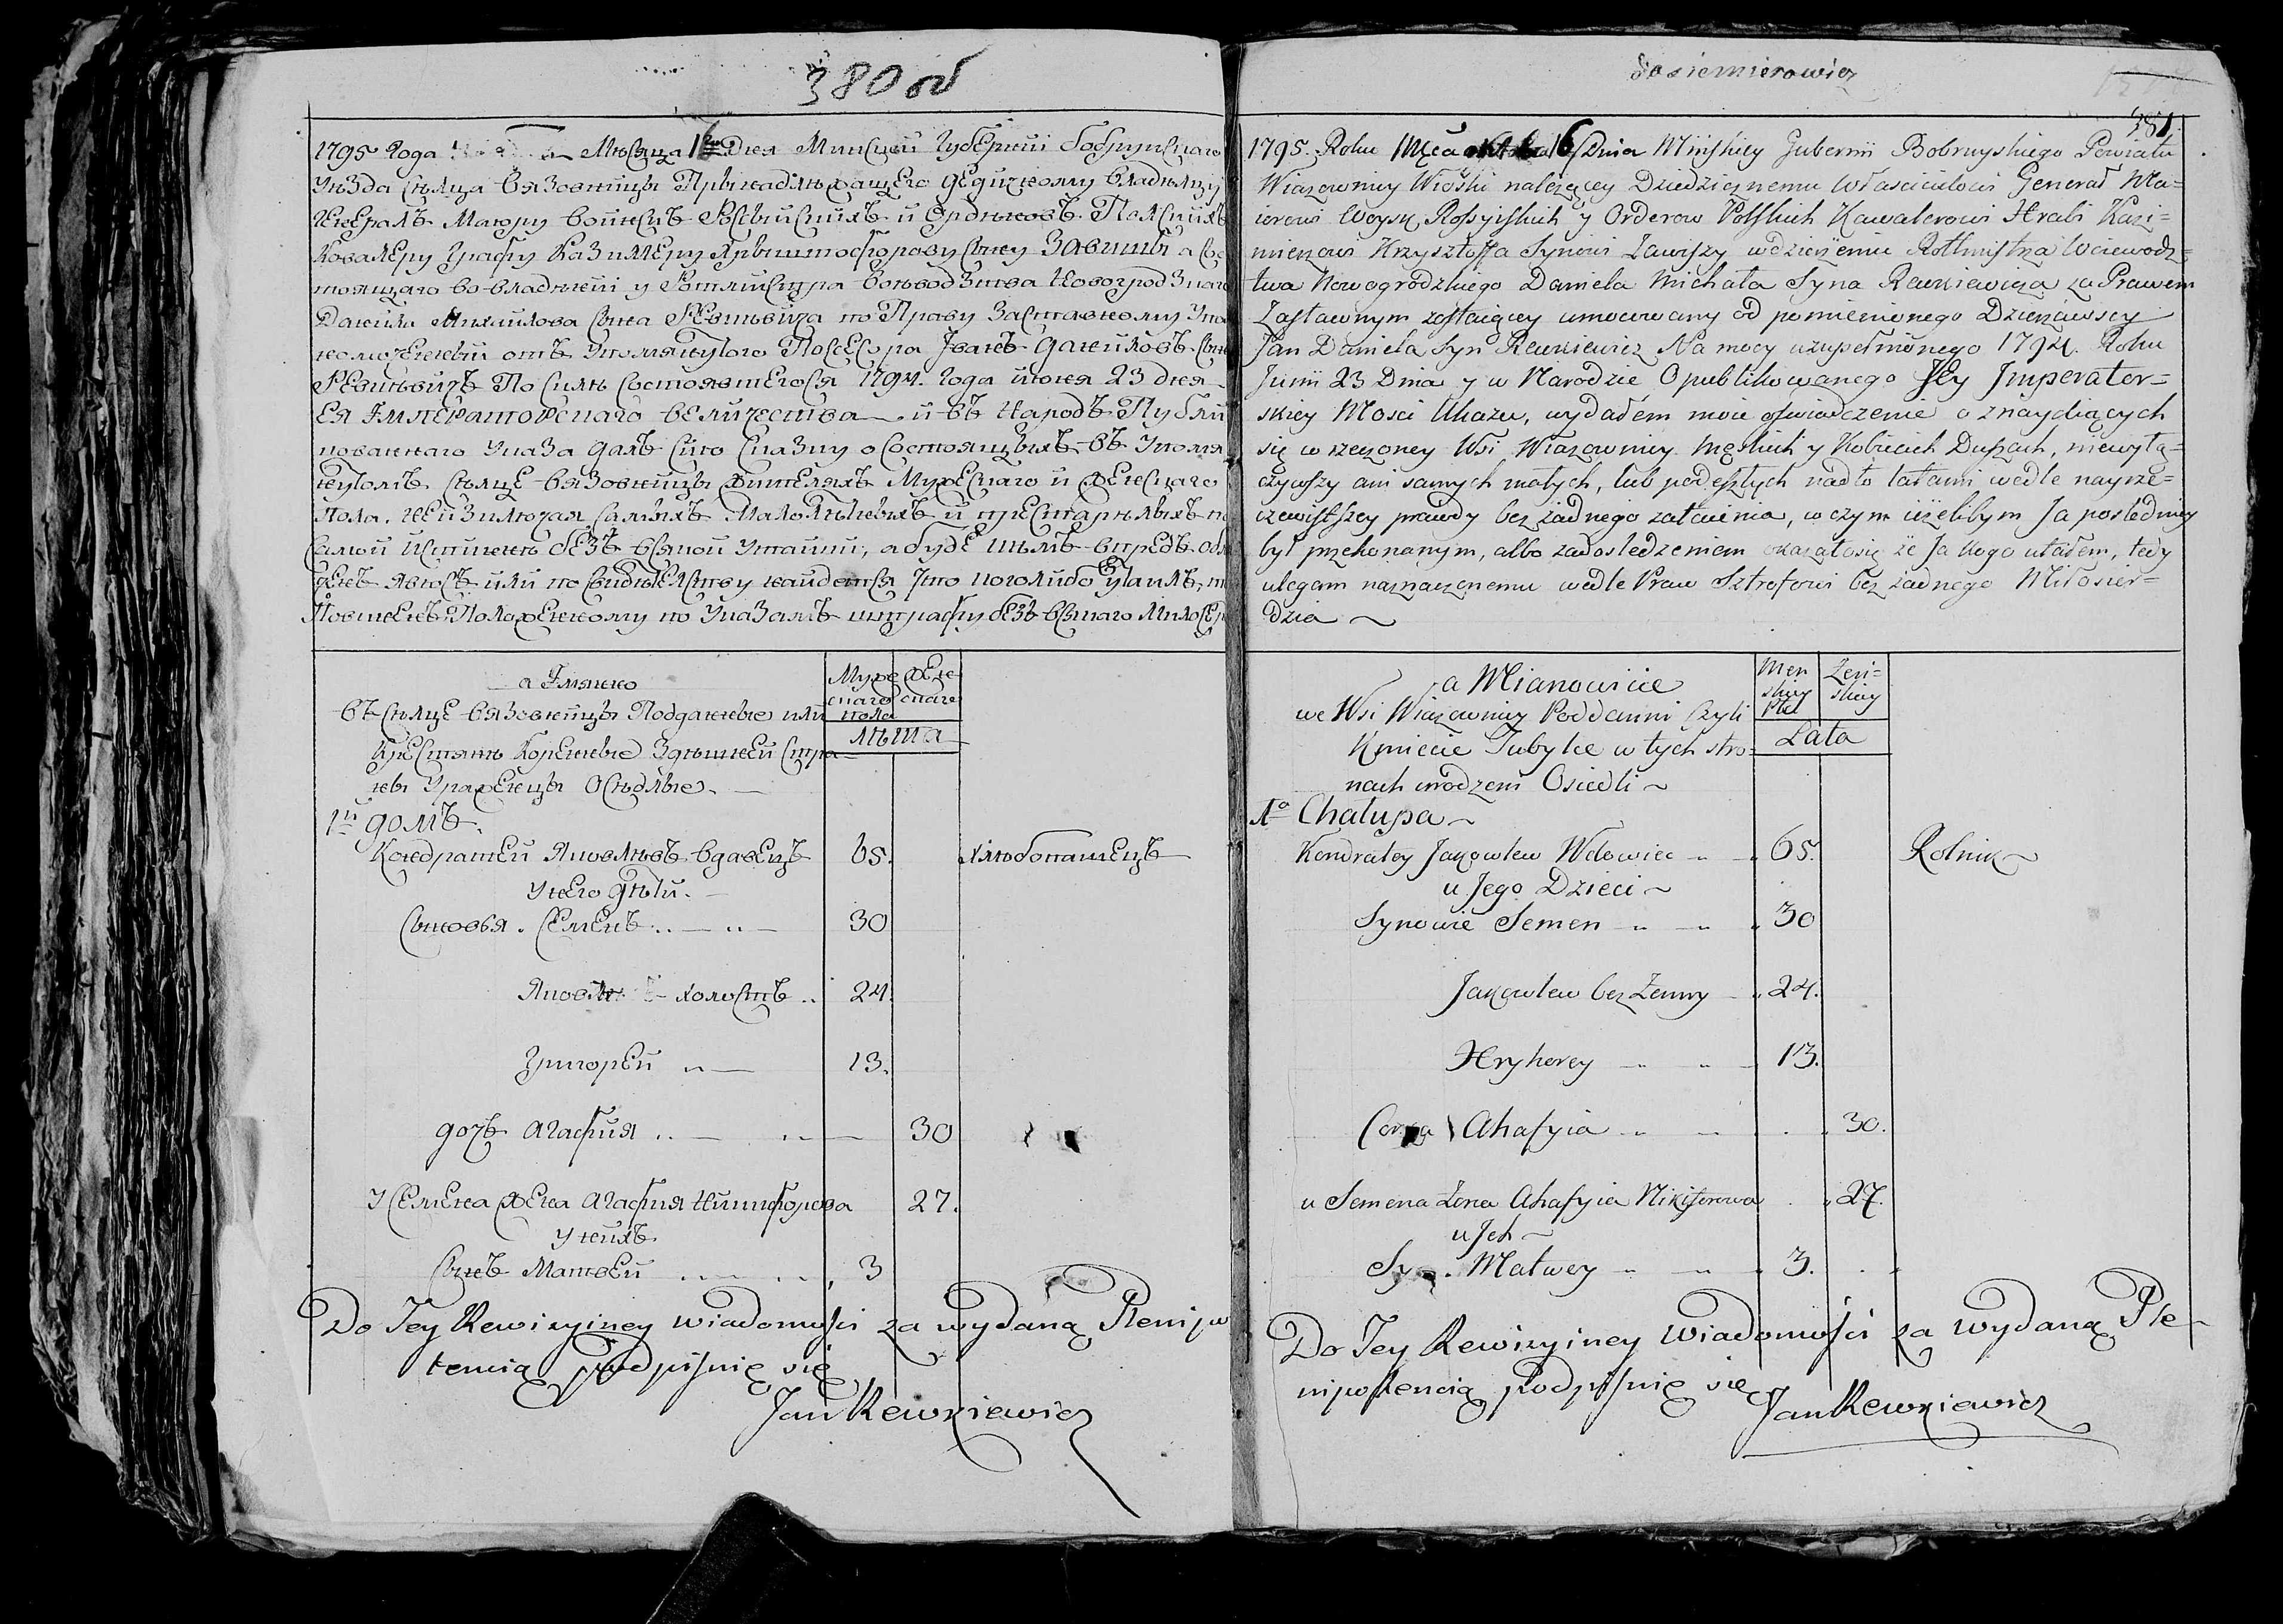 380 об
1795 Года Мѣсяца 16 Дня Минской Губернiи Бобруйскаго
Уѣзда сѣлца Вязовницы Принадлѣжащего дедичному владѣлцу
Генералъ Маюру войскъ Росѣйскихъ и Ордѣновъ Полскихъ
Ковалеру Графу Казимеру Крыштофорову сыну Завишы а сос
тоящаго во владѣнiи у Ротмистра Воеводзтва Новогродзкаго
Данила Михайлова сына Ревкѣвича по Праву Заставному Упо
номоченный отъ Упомянутого Посесора Иванъ Данйловъ сынъ
Ревкѣвичъ По силѣ состоявшегося 1794. Года июня 23 дня
Ея Императорскаго величества и въ Народъ Публи
кованнаго Указа далъ сию сказку о состоящыхъ въ Упомя
нутомъ сѣлце Вязовницы жителяхъ Мужескаго и женскаго
Пола. не изключая самыхъ Малолѣтныхъ и престарѣлыхъ по
самой истиннѣ безъ всякой утайки, а буде въ чемъ впредь обли
ченъ явюсъ или по свидѣтелству найдется что кого либо утаилъ, то
Повиненъ Положенному по Указамъ штрафу безъ всякаго милосер
а Имянно
въ сѣлце Вязовницы Подданные или
Крестянѣ Коренные Здѣшней Стра
ны Уроженцы Осѣдлые.
Муже
скаго
пола
Жен
скаго
лѣта
1й домъ.
Кондратей Яковлѣвъ вдовецъ 65. хлѣбопашецъ
У него дѣти.
Сыновья. Семенъ 30
Яковъ холостъ 24.
Григорей 13.
дочь Агафия 30
У Семена жена Агафия Никифорова 27.
У нихъ
Сынъ Матвей 3
Do Tey Rewizyiney wiadomości za wydaną Plenipo
tencią podpisuię się
Jan Rewkiewicz
Dosiemierowicz
381.
1795. Roku Mca 16 Dnia Mińskiey Gubernii Bobruyskiego Powiatu
Wiazownicy Wioski należącey Dziedzicznemu Właścicielowi Generał Ma=
iorowi Woysk Rossyiskich y Orderow Polskich Kawalerowi Hrabi Kazi=
mierzowi Krzysztoffa Synowi Zawiszy w dzierżeniu Rotmistrza Woiewodz=
twa Nowogrodzkiego Daniela Michała Syna Rewkiewicza za Prawem
Zastawnym zostaiącey umocowany od pomienionego Dzierżawcy
Jan Daniela Syn Rewkiewicz Na mocy uzupełnionego 1794. Roku
Junii 23 Dnia y w Narodzie Opublikowanego Jey Imperator=
skiey Mości Ukazu, wydałem moie oświadczenie o znaydiących
się w rzeczoney Wsi Wiazownicy męskich y Kobiecich Duszach, niewyłą=
czywszy ani samych małych, lub podeszłych nadto latami wedle nayrze=
czewistszey prawdy bez żadnego zataienia, w czym ieżelibym Ja posledniey
był przekonanym, albo za dosledzeniem okazałosię że Ja kogo utaiłem, tedy
ulegam naznaczonemu wedle Praw Sztrofowi bez żadnego Miłosier=
dzia
a Mianowicie
we Wsi Wiazownicy Poddanni Czyli
Kmiecie Tubylce w tych stro=
nach urodzeni Osiedli
Men
skiey
Płci
Żeń=
skiey
Lata
1o Chałupa
Kondratey Jakowlew Wdowiec 65. Rolnik
u Jego Dzieci
Synowie Semen 30
Jakowlew bez Żenny 24.
Hryhorey 13.
Corka Ahafyia 30.
u Semena Żona Ahafyia Nikiforowa 27.
u Jch
Syn Matwey 3.
Do Tey Rewizyiney Wiadomości za wydaną Ple-
nipotencią podpisuię się
Jan Rewkiewicz